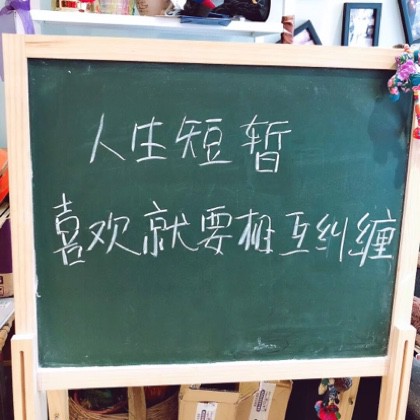 人生短暂
喜欢就要相互纠缠